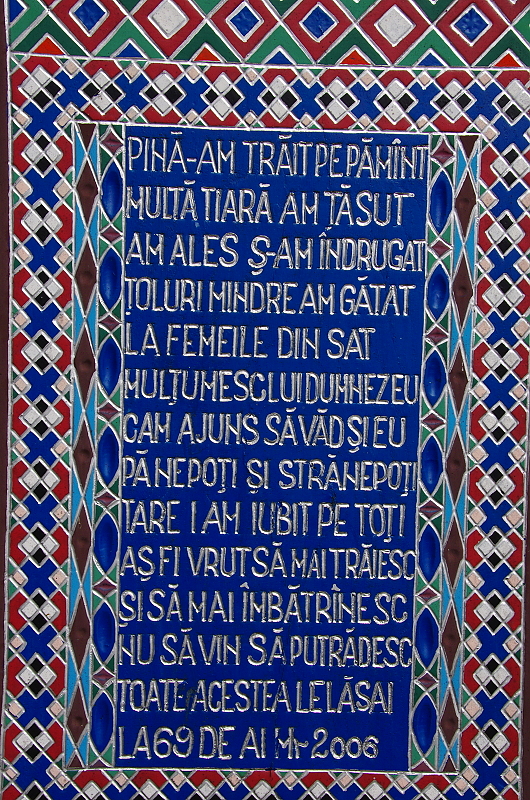 PINĂ-AM TRĂIT PE PĂMÎNT
MULTĂ TIARĂ AM TĂSUT
AM ALES Ș-AM ÎNDRUGAT
ȚOLURI MINDRE AM GĂTAT
LA FEMEILE DIN SAT
MULȚUMESC LUI DUMNEZEU
CAM AJUNS SĂ VĂD ȘI EU
PĂ NEPOȚI ȘI STRĂNEPOȚI
TARE I AM IUBIT PE TOȚI
AȘ FI VRUT SĂ MAI TRĂIESC
ȘI SĂ MAI ÎMBĂTRÎNESC
NU SĂ VIN SĂ PUTRĂDESC
TOATE ACESTEA LE LĂSAI
LA 69 DE AI 2006